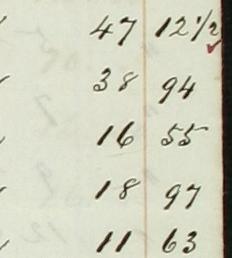 47 12 1/2
38 94
16 55
18 97
11 63